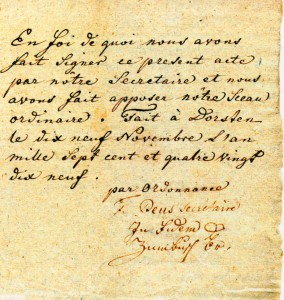 En foi de quoi nous avons
fait signer ce present acte
par nôtre Secretaire et nous
avons fait apposer nôtre Sceau
ordinaire. Fait à Dorsten
le dix neuf Novembre L'an
mille Sept cent et quatre vingt
dix neuf.
par Ordonnance
Deus Secretaire
In Fidem